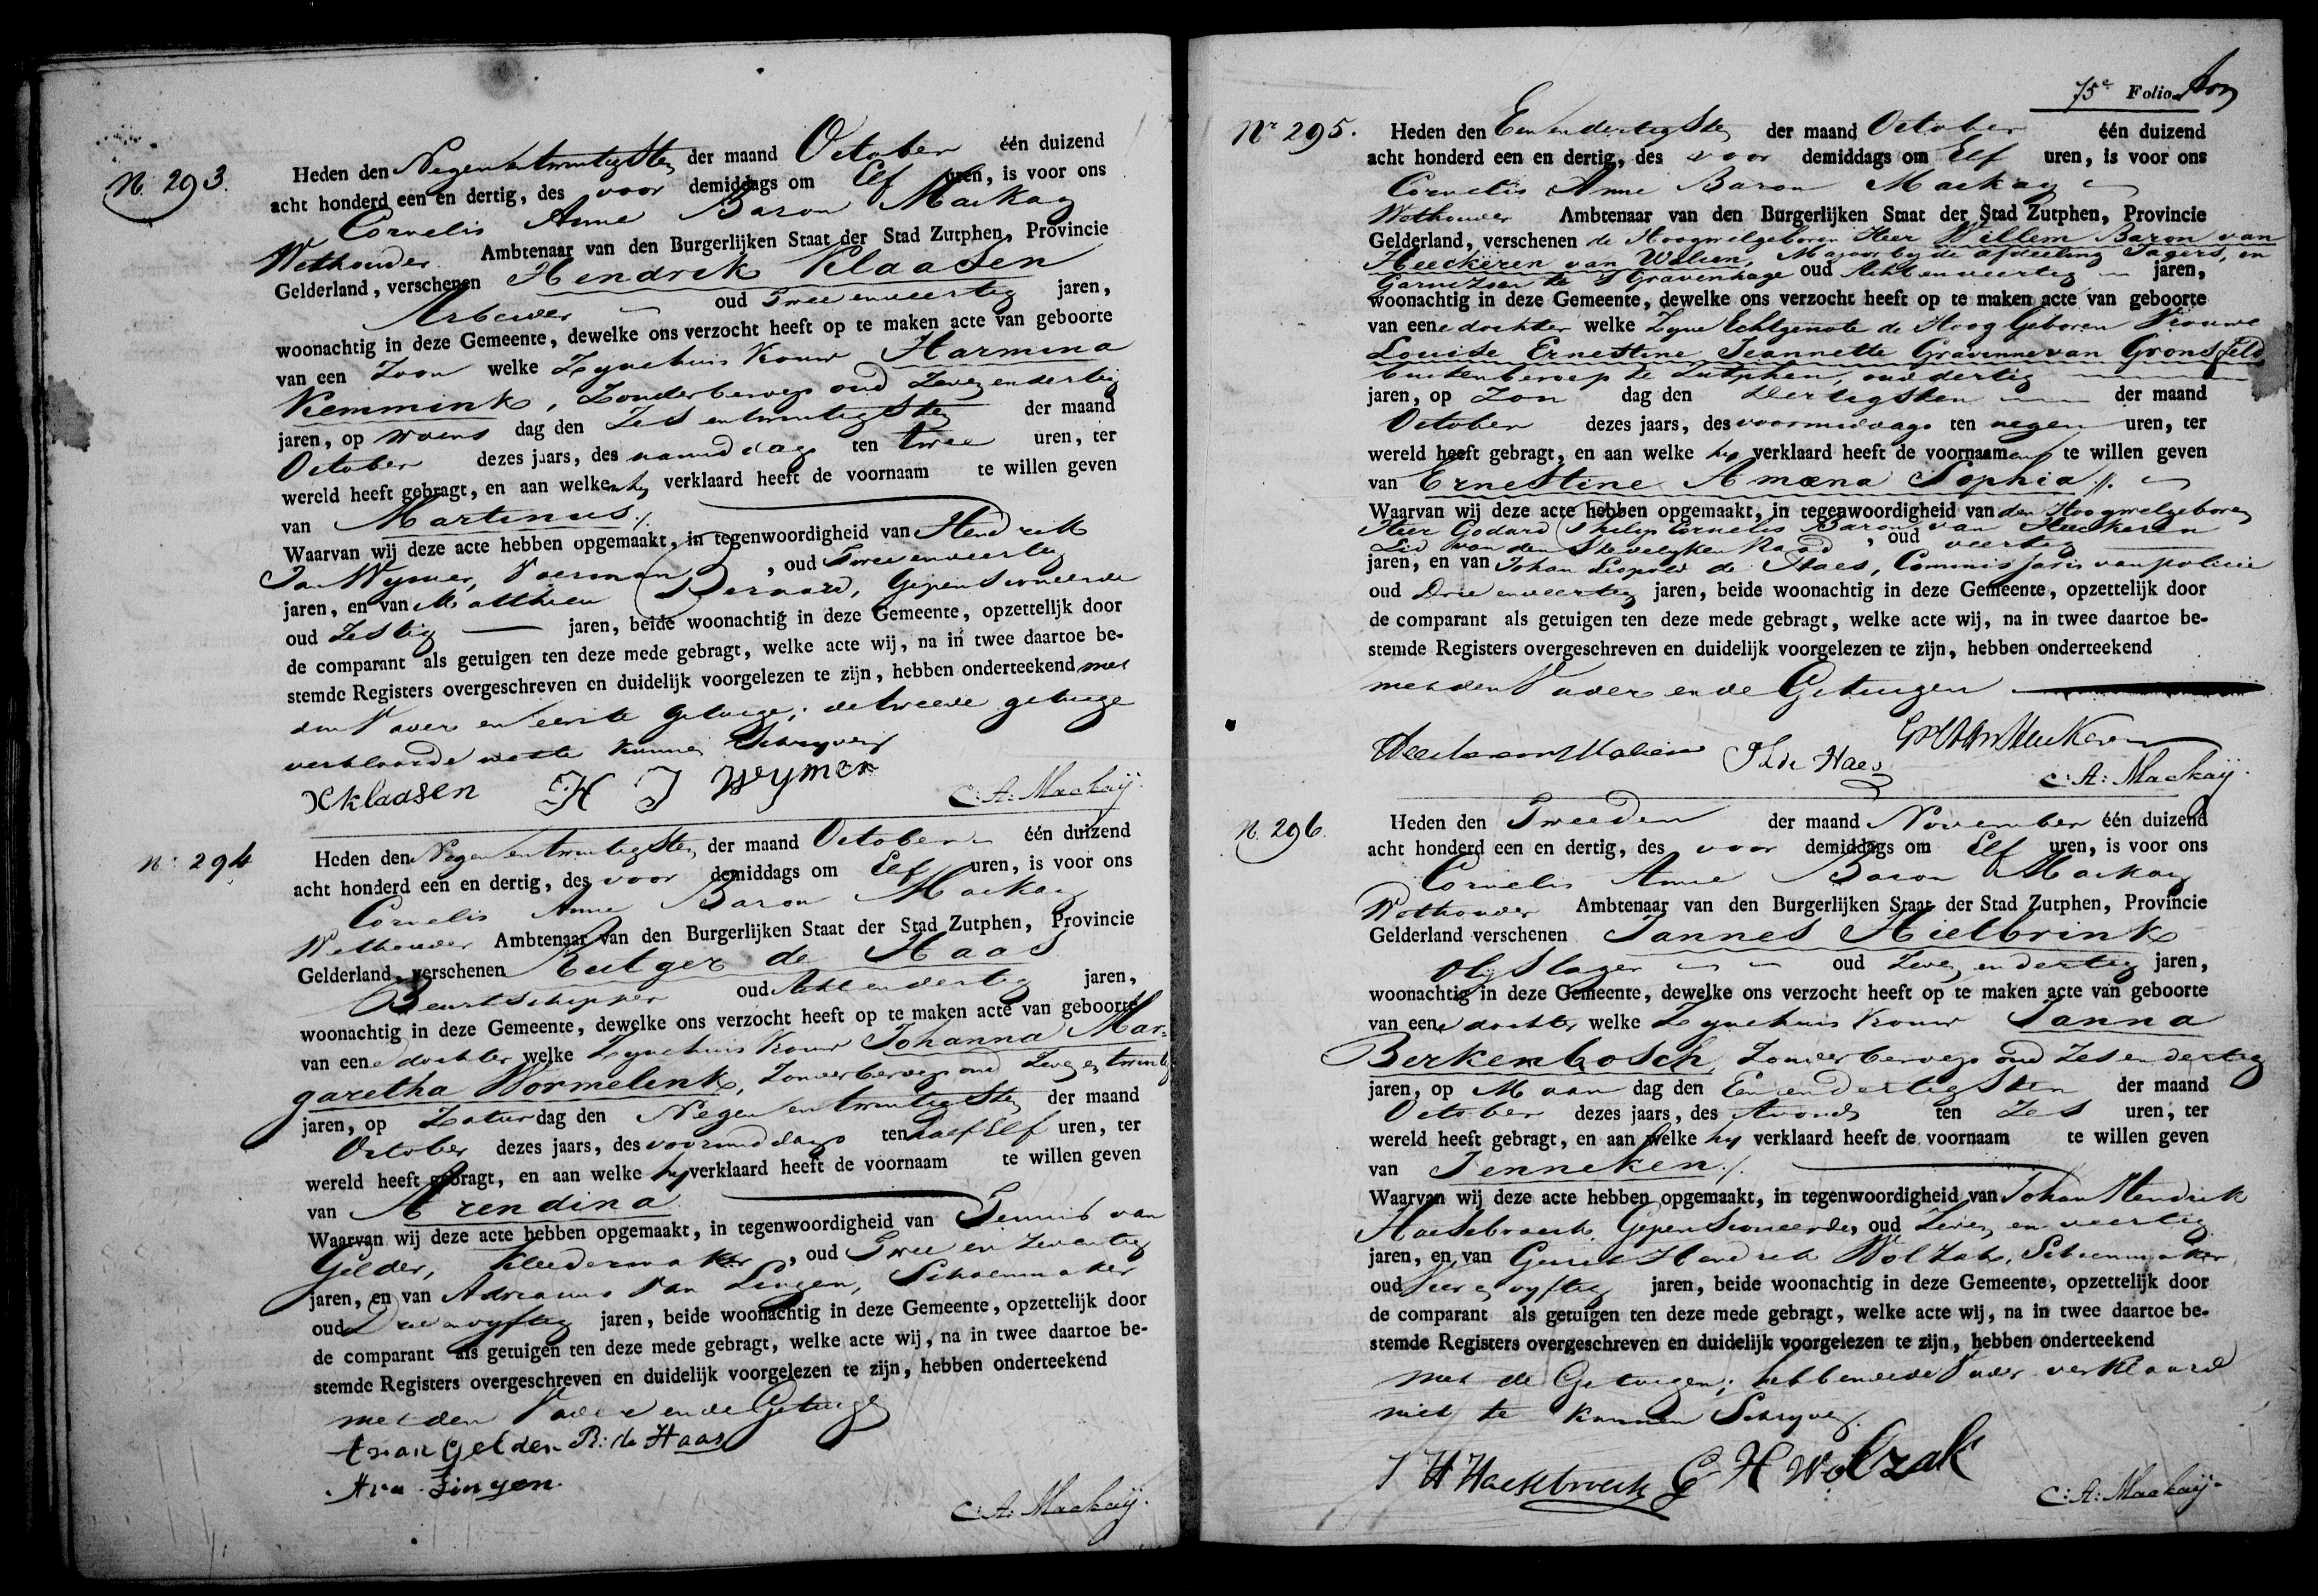 N. 293.
Heden den Negenentwintigsten der maand October één duizend
acht honderd een en dertig, des voor demiddags om Elf uren, is voor ons
Cornelis Anne Baron Mackay
Wethouder Ambtenaar van den Burgerlijken Staat der Stad Zutphen, Provincie
Gelderland, verschenen Hendrik Klaasen
Arbeider oud Twee en veertig jaren,
woonachtig in deze Gemeente, dewelke ons verzocht heeft op te maken acte van geboorte
van een Zoon welke Zyne huis Vrouw Harmina
Kemmink, Zonder beroep oud Zeven en dertig
jaren, op Woens dag den Zes entwintigsten der maand
October dezes jaars, des namiddags ten twee uren, ter
wereld heeft gebragt, en aan welken hy verklaard heeft de voornaam te willen geven
van Martinus ./.
Waarvan wij deze acte hebben opgemaakt, in tegenwoordigheid van Hendrik
Jan Wymer, Voerman, oud Twee en veertig
jaren, en van Matthieu Bernard, Gepensioneerde
oud Zestig jaren, beide woonachtig in deze Gemeente, opzettelijk door
de comparant als getuigen ten deze mede gebragt, welke acte wij, na in twee daartoe be-
stemde Registers overgeschreven en duidelijk voorgelezen te zijn, hebben onderteekend met
den Vader en eerste getuige; de tweede getuige
verklaarde niet te kunnen Schryven
H Klaasen H J Wymer
C: A: Mackaij.
N: 294
Heden den Negenentwintigsten der maand October één duizend
acht honderd een en dertig, des voor demiddags om Elf uren, is voor ons
Cornelis Anne Baron Mackay
Wethouder Ambtenaar van den Burgerlijken Staat der Stad Zutphen, Provincie
Gelderland, verschenen Rutger de Haas
Beurtschipper oud Acht en dertig jaren,
woonachtig in deze Gemeente, dewelke ons verzocht heeft op te maken acte van geboorte
van eene dochter welke Zyne huis Vrouw Johanna Mar=
garetha Wormelink, Zonder beroep oud Zeven en twintig
jaren, op Zatur dag den Negen entwintigsten der maand
October dezes jaars, des voormiddags ten half Elf uren, ter
wereld heeft gebragt, en aan welke hy verklaard heeft de voornaam te willen geven
van Arendina
Waarvan wij deze acte hebben opgemaakt, in tegenwoordigheid van Teunis van
Gelder, Kleedermaker, oud Twee en Zeventig
jaren, en van Adrianus van Lingen, Schoenmaker
oud Drie en vyftig jaren, beide woonachtig in deze Gemeente, opzettelijk door
de comparant als getuigen ten deze mede gebragt, welke acte wij, na in twee daartoe be-
stemde Registers overgeschreven en duidelijk voorgelezen te zijn, hebben onderteekend
met den Vader en de Getuigen
t van Gelder R: de Haas
A va Lingen.
C: A: Mackaij.
75e Folio
Nr 295.
Heden den Een en dertigsten der maand October één duizend
acht honderd een en dertig, des voor demiddags om Elf uren, is voor ons
Cornelis Anne Baron Mackay
Wethouder Ambtenaar van den Burgerlijken Staat der Stad Zutphen, Provincie
Gelderland, verschenen de Hoogwelgeboren Heer Willem Baron van
Heeckeren van Walien, Majoor by de afdeeling Jagers, in
Garnizoen te 's Gravenhage oud Acht en veertig jaren,
woonachtig in deze Gemeente, dewelke ons verzocht heeft op te maken acte van geboorte
van eene dochter welke Zyne Echtgenote de Hoog Geboren Vrouwe
Louise Ernestine Jeannette Gravinne van Gronsfeld
buiten beroep te Zutphen, oud dertig
jaren, op Zon dag den Dertigsten der maand
October dezes jaars, des voormiddags ten negen uren, ter
wereld heeft gebragt, en aan welke hy verklaard heeft de voornaamen te willen geven
van Ernestine Amœna Sophia ./.
Waarvan wij deze acte hebben opgemaakt, in tegenwoordigheid van den Hoogwelgeboren
Heer Godard Philip Cornelis Baron van Heeckeren
Lid van den Stedelyken Raad, oud veertig
jaren, en van Johan Leopold de Haes, Commissaris van policie
oud Drie en veertig jaren, beide woonachtig in deze Gemeente, opzettelijk door
de comparant als getuigen ten deze mede gebragt, welke acte wij, na in twee daartoe be-
stemde Registers overgeschreven en duidelijk voorgelezen te zijn, hebben onderteekend
met den Vader en de Getuigen
J L de Haes
C: A: Mackaij.
N. 296.
Heden den Tweeden der maand November één duizend
acht honderd een en dertig, des voor demiddags om Elf uren, is voor ons
Cornelis Anne Baron Mackay
Wethouder Ambtenaar van den Burgerlijken Staat der Stad Zutphen, Provincie
Gelderland verschenen Jannes Hielbrink
Olyslager oud Zeven en dertig jaren,
woonachtig in deze Gemeente, dewelke ons verzocht heeft op te maken acte van geboorte
van eene dochter welke Zyne huis Vrouw Janna
Berkenbosch Zonder beroep oud Zes en dertig
jaren, op Maan dag den Een en dertigsten der maand
October dezes jaars, des Avonds ten Zes uren, ter
wereld heeft gebragt, en aan welke hy verklaard heeft de voornaam te willen geven
van Jenneken ./.
Waarvan wij deze acte hebben opgemaakt, in tegenwoordigheid van Johan Hendrik
Haesebroeck, Gepensioneerde, oud Zeven en veertig
jaren, en van Gerrit Hendrik Wolzak, Schoenmaker
oud Vier en vyftig jaren, beide woonachtig in deze Gemeente, opzettelijk door
de comparant als getuigen ten deze mede gebragt, welke acte wij, na in twee daartoe be-
stemde Registers overgeschreven en duidelijk voorgelezen te zijn, hebben onderteekend
met de Getuigen; hebbende de Vader verklaard
niet te kunnen Schryven.
J H Haesebroeck G H Wolzak
C: A: Mackaij.